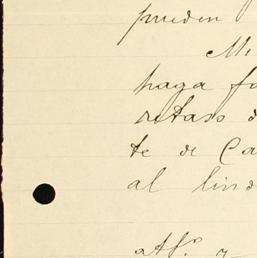 pueden
Mi
haga fo
retaso d
te de Ca
al lind
Af.º y